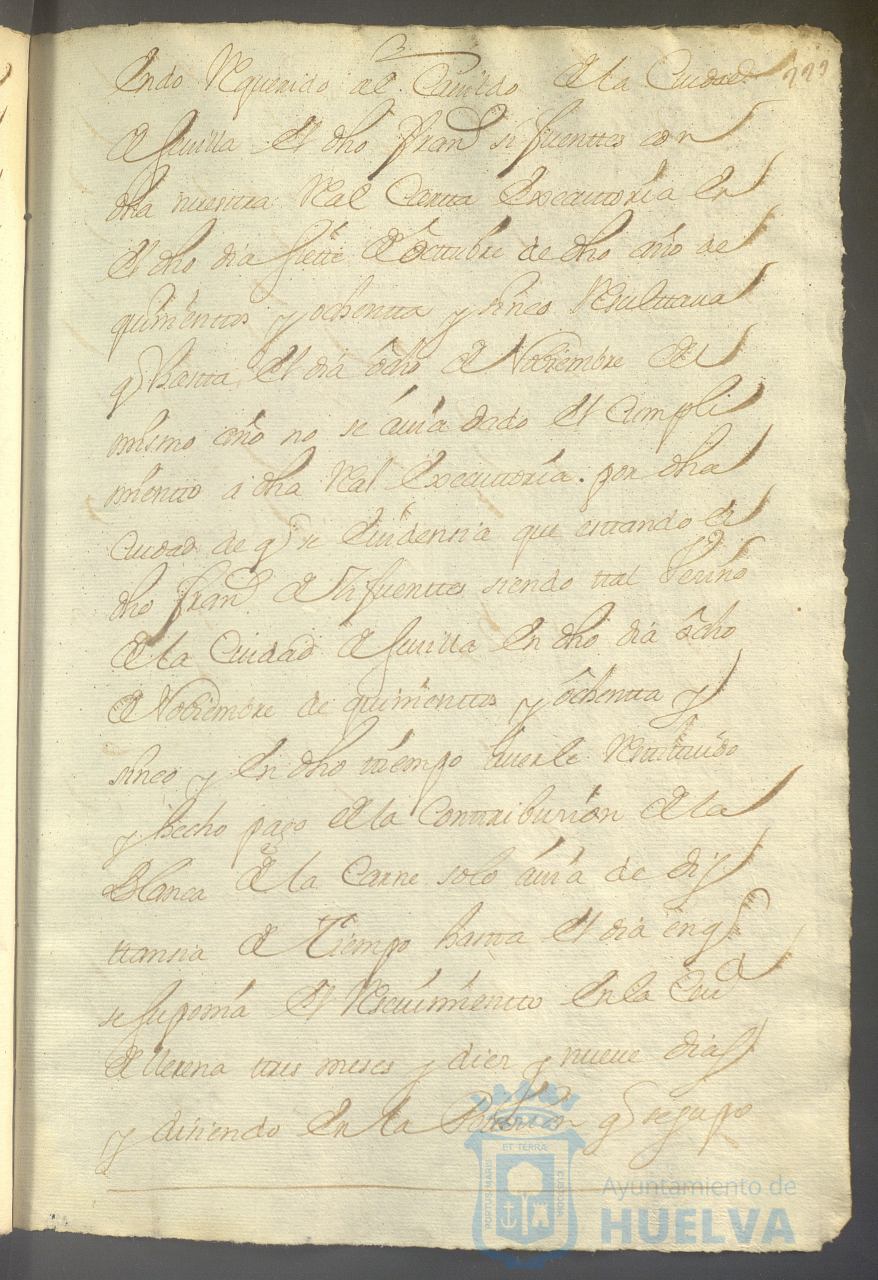 endo Requerido al Cavildo de la Ciudad
de Sevilla el dho Franco sifuenttes con
dha nuestra Real Cartta Executtoria en
el dho dia siette de Octtubre de dho año de
quinienttos y ochentta y sinco Resulttava
q hasta el dia ocho de Nobiembre del
mismo año no se avia dado el Cumpli
mientto a dha Real Executtoria por dha
Ciudad de q se evidensia que esttando el
dho Franco de Sifuenttes siendo ttal Vezino
de la Ciudad de Sevilla en dho dia ocho
de Nobiembre de quinienttos y ochentta y
sinco y en dho tiempo averle Resttituido
y hecho pago de la Conttribusion de la
Blanca de la Carne solo avia de dis
ttansia de Tiempo hasta el dia en q
se suponia el Nasimientto en la Ciud
de Llerena ttres meses y diez y nueve dias
y disiendo en la q se supo
ET TERRAE
PORTUS MARIS
CUSTODIA
Ayuntamiento de
HUELVA